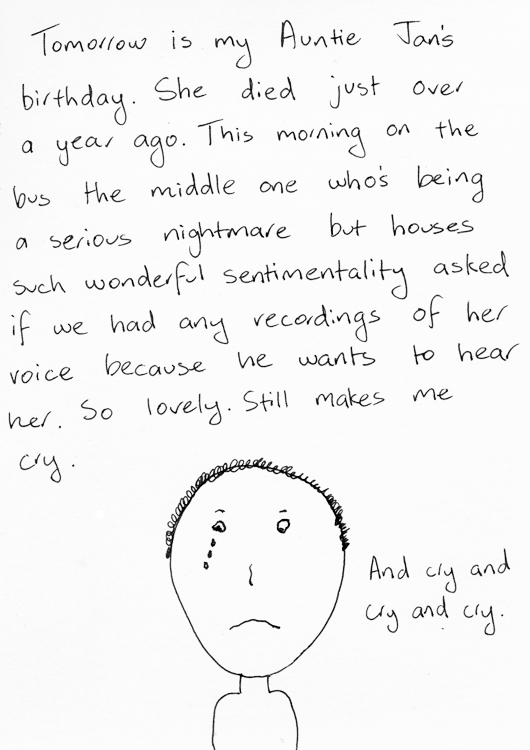 Tomorrow is my Auntie Jan's
birthday. She died just over
a year ago. This morning on the
bus the middle one who's being
a serious nightmare but houses
such wonderful sentimentality asked
if we had any recordings of her
voice because he wants to hear
her. So lovely. Still makes me
cry.
And cry and
cry and cry.